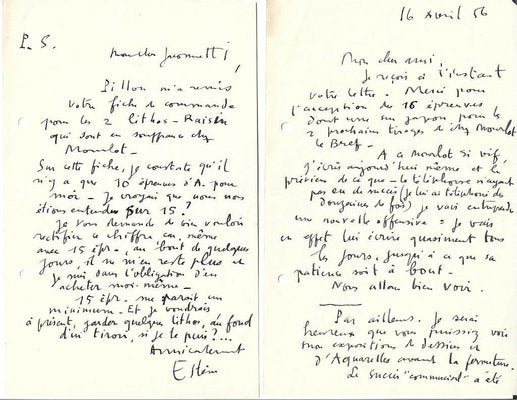 P.S.
mon cher Giovanetti,
Pillon m'a remis
votre fiche de commande
pour les 2 lithos - Raisin
qui sont en souffrance chez
Mourlot -
Sur cette fiche, je constate qu'il
n'y a que 10 épreuves d'A. pour
moi - Je croyais que nous nous
étions entendus sur 15 ?
Je vous demande de bien vouloir
rectifier ce chiffre car, même
avec 15 épr. au bout de quelques
jours, il ne m'en reste plus et
je suis dans l'obligation d'en
acheter moi-même -
15 épr. me paraît un
minimum - Et je voudrais
à présent, garder quelques lithos, au fond
d'un tiroir, si je le puis ?...
Amicalement
Estève
16 Avril 56
Mon cher ami,
Je reçois à l'instant
votre lettre. Merci pour
l'acception de 15 épreuves
dont une sur japon, pour les
2 prochains tirages de chez Mourlot
le Bref -
A ce Mourlot si vif,
j'écris aujourd'hui même et le
préviens de ce que - le téléphone n'ayant
pas eu de succès (je lui ai téléphoné de
douzaines de fois) je vais entreprendre
une nouvelle offensive = je vais
en effet lui écrire quasiment tous
les jours, jusqu'à ce que sa
patience soit à bout -
Nous allons bien voir.
Par ailleurs, je serai
heureux que vous puissiez voir
mon exposition de dessins et
d'Aquarelles avant la fermeture.
Le succès "commercial" a été